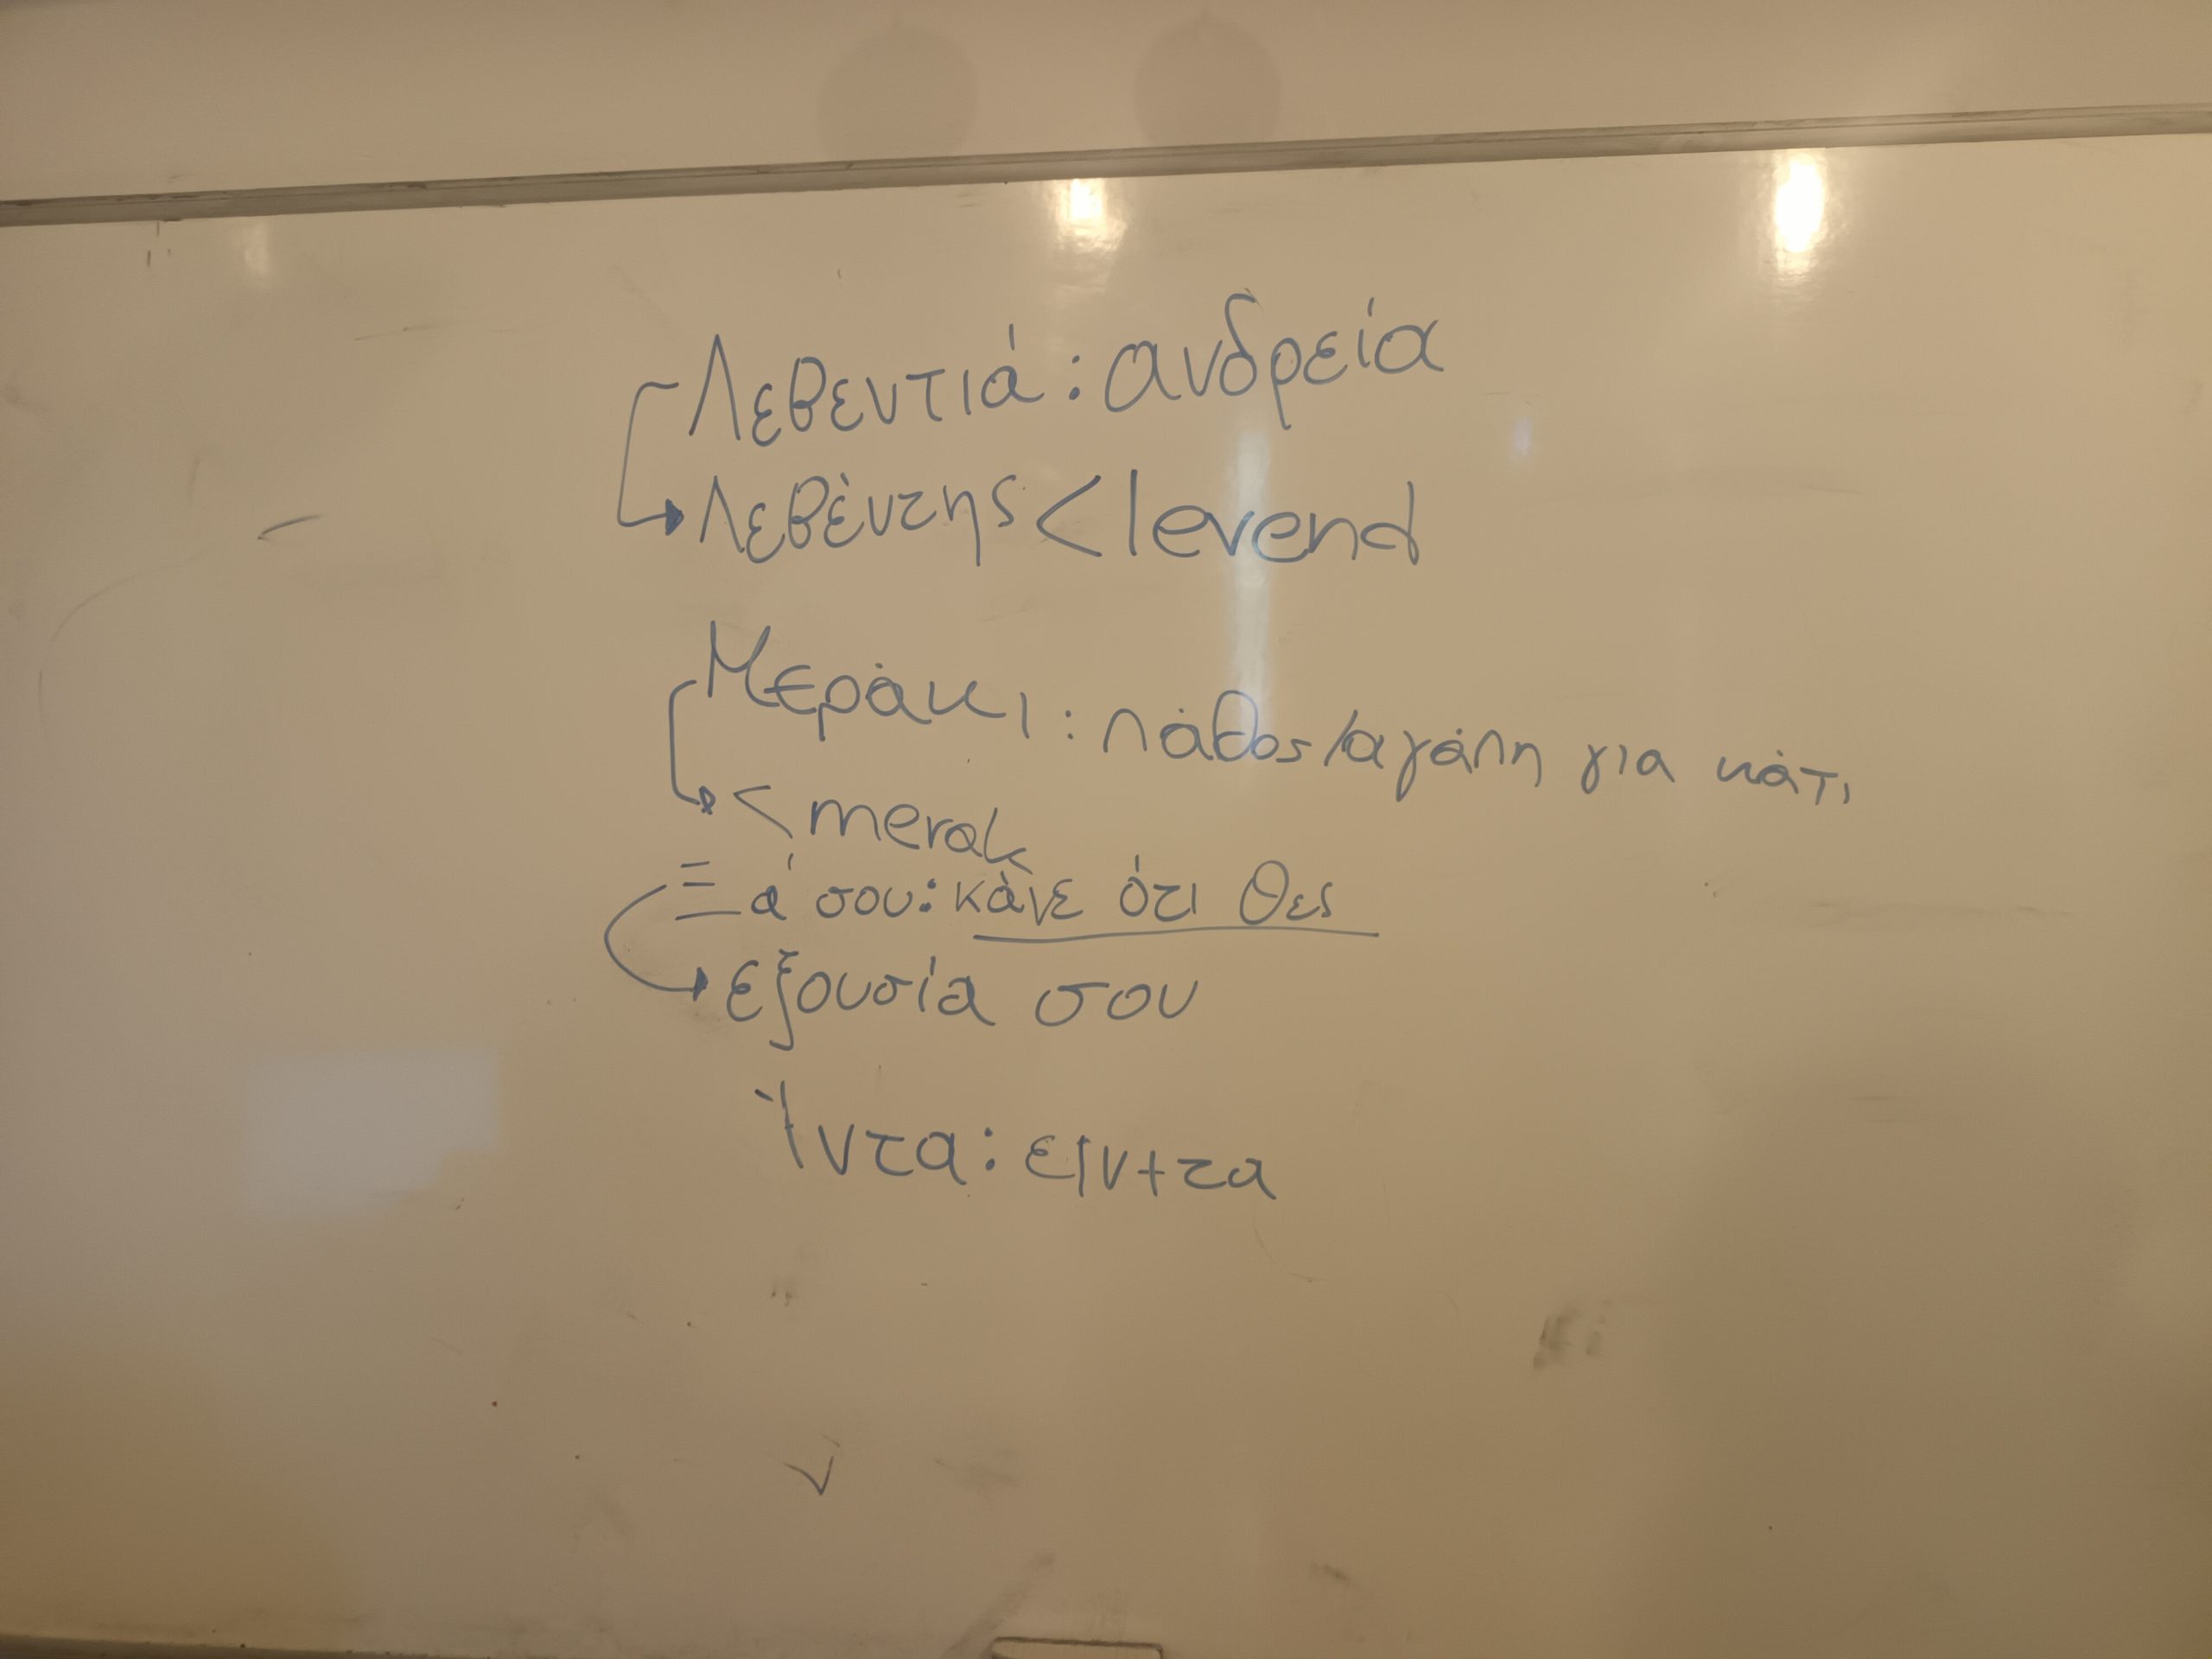 Λεβεντιά: ανδρεία
Λεβέντης < levend
Μεράκι: πάθος/αγάπη για κάτι
< merak
Ξά σου: κάνε ότι θες
εξουσία σου
Ίντα: ειν+τα